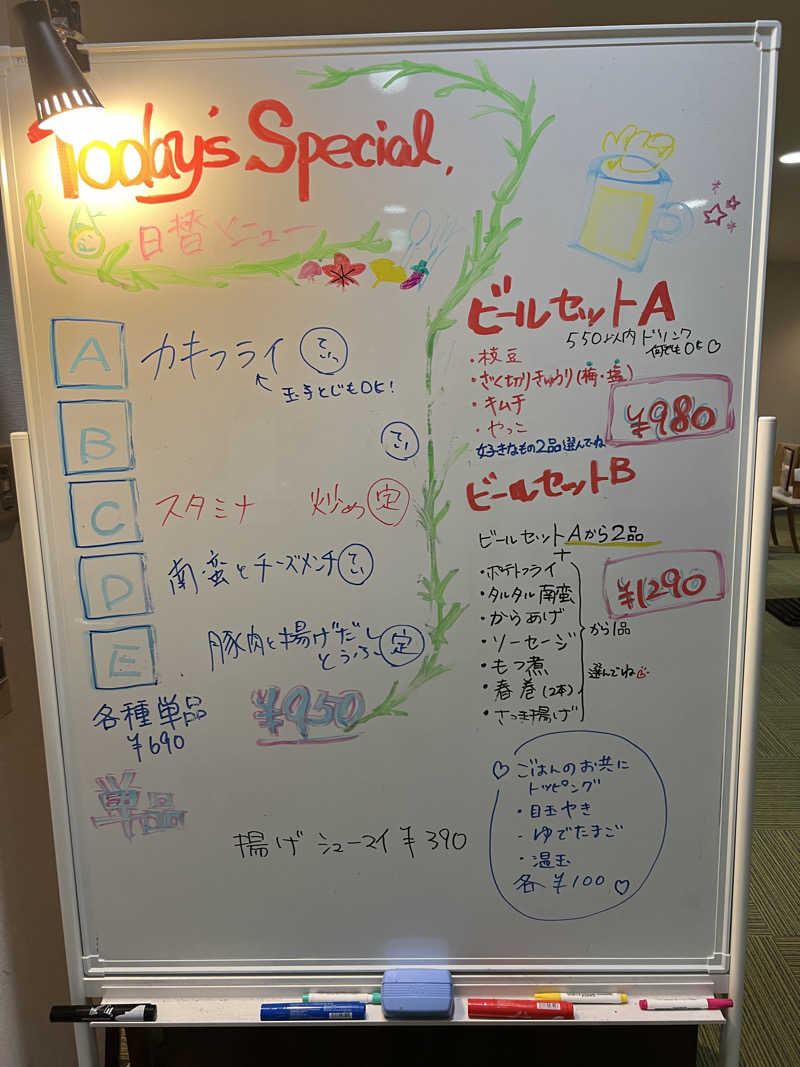 Today's Special.
日替メニュー
A カキフライ てい
↖玉子とじもOK!
B てい
C スタミナ 炒め 定
D 南蛮とチーズメンチ てい
E 豚肉と揚げだし
とうふ 定
各種単品
¥690
¥950
単品
揚げシューマイ ¥390
ビールセットA
550以内ドリンク
何でもOK♡
・枝豆
・ざく切りきゅうり(梅・塩)
・キムチ
・やっこ
好きなもの2品選んでね
¥980
ビールセットB
ビールセットAから2品
+
・ポテトフライ
・タルタル南蛮
・からあげ
・ソーセージ
・もつ煮
・春巻(2本)
・さつま揚げ
から1品
選んでね
¥1290
♡ごはんのお共に
トッピング
・目玉やき
・ゆでたまご
・温玉
各¥100♡